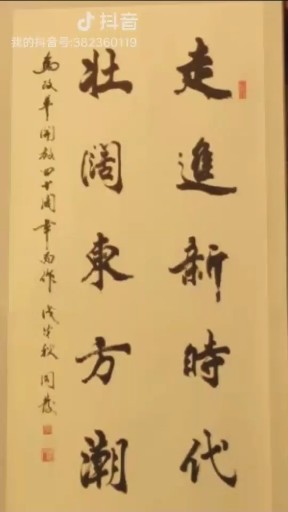 抖音
我的抖音号:362360119
走進新時代
壯闊東方潮
為改革開放四十周年而作 戊戌秋